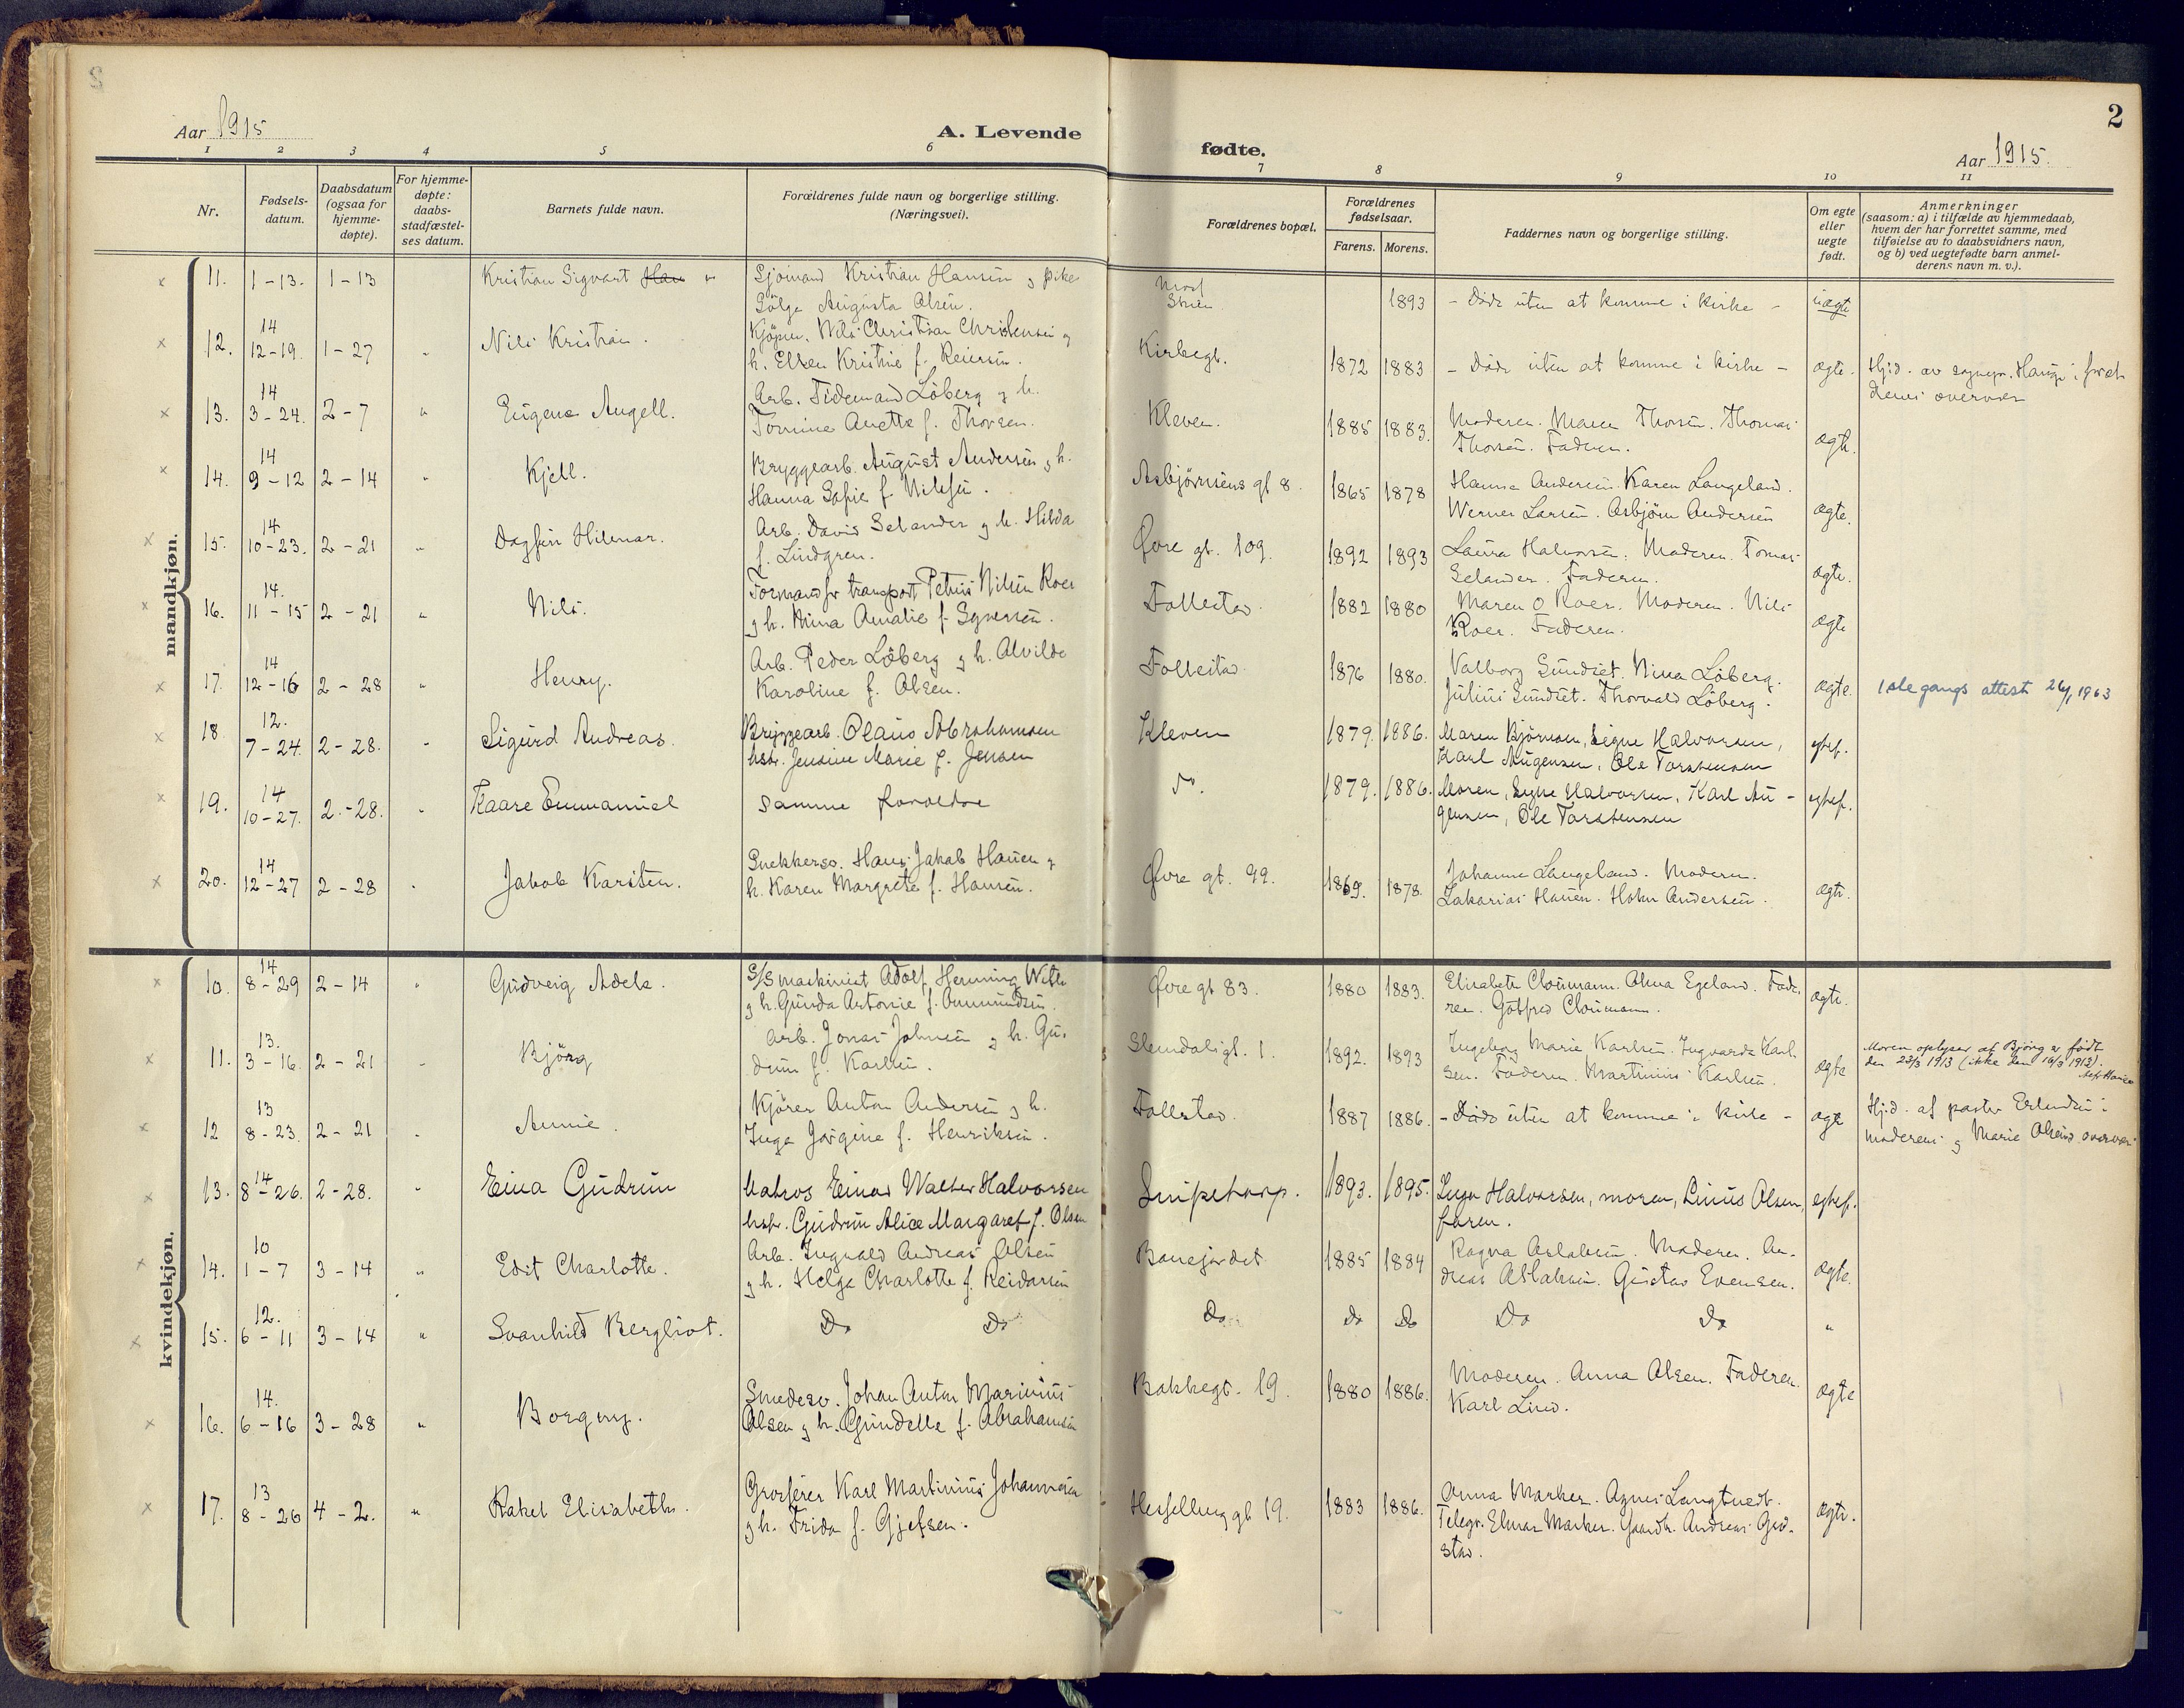 2
Aar 1915
A. Levende
fødte.
Aar 1915.
1 2 3 4 5 6 7 8 9 10 11
Nr.
Fødsels-
datum.
Daabsdatum
(ogsaa for
hjemme-
døpte).
For hjemme-
døpte:
daabs-
stadfæstel-
ses datum.
Barnets fulde navn.
Forældrenes fulde navn og borgerlige stilling.
(Næringsvei).
Forældrenes bopæl.
Forældrenes
fødselsaar.
Farens. Morens.
Faddernes navn og borgerlige stilling.
Om egte
eller
uegte
født.
Anmerkninger
(saasom: a) i tilfælde av hjemmedaab,
hvem der har forrettet samme, med
tilføielse av to daabsvidners navn,
og b) ved uegtefødte barn anmel-
derens navn m. v.).
mandkjøn.
11. 1-13. 1-13 Kristian Sigvart Sjömand Kristian Hansen g pike
Augusta Olsen. 1893 - Döde uten at komme i kirke - uægte
14
12. 12-19. 1-27 " Nils Kristian. Nils Christian Christensen g
h. Ellen Kristine f. Reiersen. Kirkegt. 1872 1883 - Döde uten at komme i kirke - ægte. Hj.d. av sogнepr. Hauge i foræl
drenes overvær
14
13. 3-24. 2-7 " Eugene Angell. Arb. Tidemand Löberg g h.
Tomine Anette f. Thorsen. Kleven. 1885 1883. Moderen. Maren Thorsen. Thomas
Thorsen. Faderen. ægte.
14
14. 9-12 2-14 " Kjell. Bryggearb. August Andersen g h.
Hanna Sofie f. Nilsen. Asbjørnsens gt 8. 1865 1878 Hanna Andersen. Karen Langeland.
Werner Larsen. Asbjörn Andersen ægte.
14
15. 10-23. 2-21 " Dagfin Hilmar. Arb. David Selander g h. Hilda
f. Lindgren. Øvre gt. 109. 1892 1893 Laura Halvorsen. Moderen. Tomas
Selander. Faderen. ægte.
14.
16. 11-15 2-21 " Nils. Formand for transport Petrus Nilsen Roer
g h. Mina Amalie f. Syversen. Follestad. 1882 1880 Maren O Roer. Moderen. Nils
Roer. Faderen. ægte
14
17. 12-16 2-28 " Henry. Arb. Peder Löberg g h. Alvilde
Karoline f. Olsen. Follestad. 1876 1880. Valborg Sundset. Nina Löberg.
Julius Sundset. Thorvald Löberg. ægte. 1ste gangs attest 26/1 1963
12.
18. 7-24. 2-28. " Sigurd Andreas. Bryggearb. Olaus Abrahamsen
hstr. Jensine Marie f. Jensen Kleven 1879. 1886. Maren Björnsen, Signe Halvorsen,
Karl Augensen, Ole Torstensen egtef.
14
19. 10-27. 2-28. " Kaare Emmanuel samme forældre do. 1879. 1886. Moren, Signe Halvorsen, Karl Au-
gensen, Ole Torstensen egtef.
14
20. 12-27 2-28 " Jakob Karsten. Snekkersv. Hans Jakob Hansen g
h. Karen Margrete f. Hansen. Øvre gt. 99. 1869. 1878. Johanne Langeland. Moderen.
Zakarias Hansen. Andersen. ægte.
kvindekjøn.
14
10. 8-29 2-14 " Gudveig Adele. S/S maskinist Adolf Henning
g h. Gunda Antonie f. Ommundsen. Øvre gt 83. 1880 1883. Elisabeth Cloumann. Olma Egeland. Fade
ren. Gotfred Cloumann. ægte.
13.
11. 3-16. 2-21 " Bjørg Arb. Jonas Johnsen g h. Gu-
drun f. Karlsen. Stendalsgt. 1. 1892. 1893 Ingeborg Marie Karlsen. Ingvarda Karl
sen. Faderen. Martinius Karlsen. ægte Moren oplyser at Bjørg er født
den 23/3 1913 (ikke den 16/3 1913).
13
12 8-23. 2-21 " Annie. Kjörer Anton Andersen g h.
Inga Jörgine f. Henriksen. Follestad. 1887 1886. - Döde uten at komme i kirke - ægte Hj.d. af pastor Erlandsen i
moderens g Marie Olsens overvær
14
13. 8-26. 2-28. " Eina Gudrun Matros Einar Walter Halvorsen
hstr. Gudrun Alice Margaret f. Olsen Snipetorp. 1893. 1895. Halvorsen, moren, Linus Olsen,
faren. egtef.
10
14. 1-7 3-14 " Edit Charlotte. Arb. Ingvald Andreas Olsen
g h. Helga Charlotte f. Reidarsen Banejordet 1885 1884 Ragna Aslaksen. Moderen. An-
dreas Aslaksen. Gustav Evensen. ægte.
12.
15. 6-11 3-14 " Svanhild Bergliot. Do Do Do Do Do Do Do "
14.
16. 6-16 3-28 " Borgny. Smedesv. Johan Anton Marinius
Olsen g h. Gundelle f. Abrahamsen Bakkegt. 19. 1880 1886. Moderen. Anna Olsen. Faderen.
Karl Lind. ægte
13
17. 8-26 4-2. " Rakel Elisabeth. Grosserer Karl Martinius Johannesen
g h. Frida f. Gjefsen. Hesselberg gt 19. 1883 1886. Anna Marker. Agnes Langtvedt.
Telegr. Elmar Marker. Gaardbr. Andreas God-
stad. ægte.